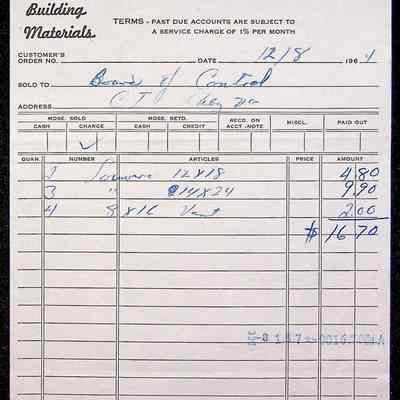 Building
Materials.
TERMS - PAST DUE ACCOUNTS ARE SUBJECT TO
A SERVICE CHARGE OF 1% PER MONTH
CUSTOMER'S
ORDER NO. DATE 12/8 1964
SOLD TO Board of Control
ADDRESS
MDSE. SOLD MDSE. RETD. RECD. ON MISCL. PAID OUT
CASH CHARGE CASH CREDIT ACCT.-NOTE
✓
QUAN. NUMBER ARTICLES PRICE AMOUNT
12X18 4.80
3 " 14X24 9.90
4 8X16 Vent 2.00
$16.70